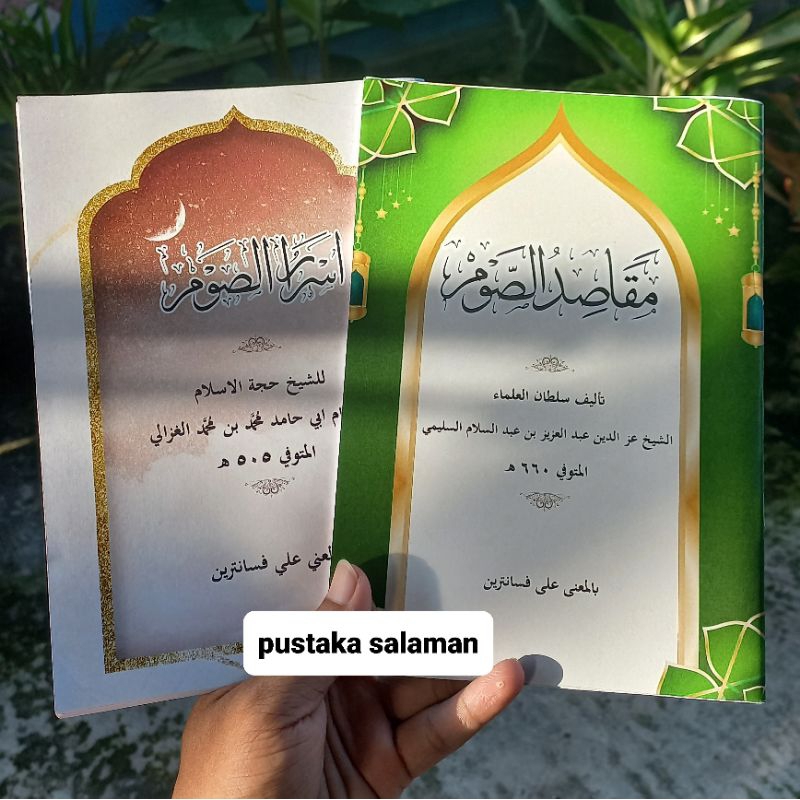 اسرار الصوم
للشيخ حجة الاسلام
ام ابي حامد محمّد بن محمّد الغزالي
المتوفي ٥٠٥ ه
بالمعني علي فسانترين
مَقَاصِدُ الصَّوْمِ
تأليف سلطان العلماء
الشيخ عز الدين عبد العزيز بن عبد السلام السليمي
المتوفي ٦٦٠ ه
بالمعنى على فسانترين
pustaka salaman